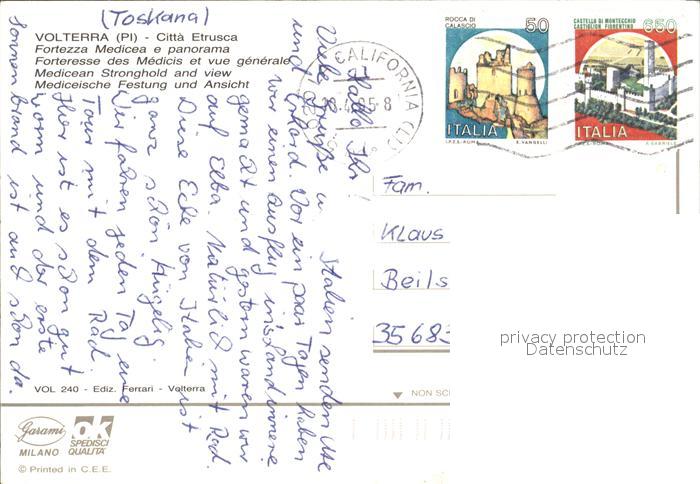 (Toskana)
VOLTERRA (PI) - Città Etrusca
Fortezza Medicea e panorama
Forteresse des Médicis et vue générale
Medicean Stronghold and view
Mediceische Festung und Ansicht
Hallo Ihr!
Viele Grüße u. Italien senden Ute
und Erhard. Vor ein paar Tagen haben
wir einen Ausflug ins Landinnere
gemacht und gestern waren wir
auf Elba. Natürlich mit Rad.
Diese Ecke von Italien ist
ganz schön hügelig.
Wir fahren jeden Tag eine
Tour mit dem Rad.
Hier ist es schon gut
warm und der erste
Sonnenbrand ist auch schon da.
VOL 240 - Ediz. Ferrari - Volterra
Garami
MILANO
OK
SPEDISCI
QUALITA'
© Printed in C.E.E.
CALIFORNIA (LI)
95-8
ROCCA DI
CALASCIO
50
ITALIA
I.P.Z.S.-ROMA
E. VANGELLI
CASTELLO DI MONTECCHIO
CASTIGLION FIORENTINO
650
ITALIA
I.P.Z.S.-ROMA
Fam.
Klaus
Beils
3568
privacy protection
Datenschutz
NON SC